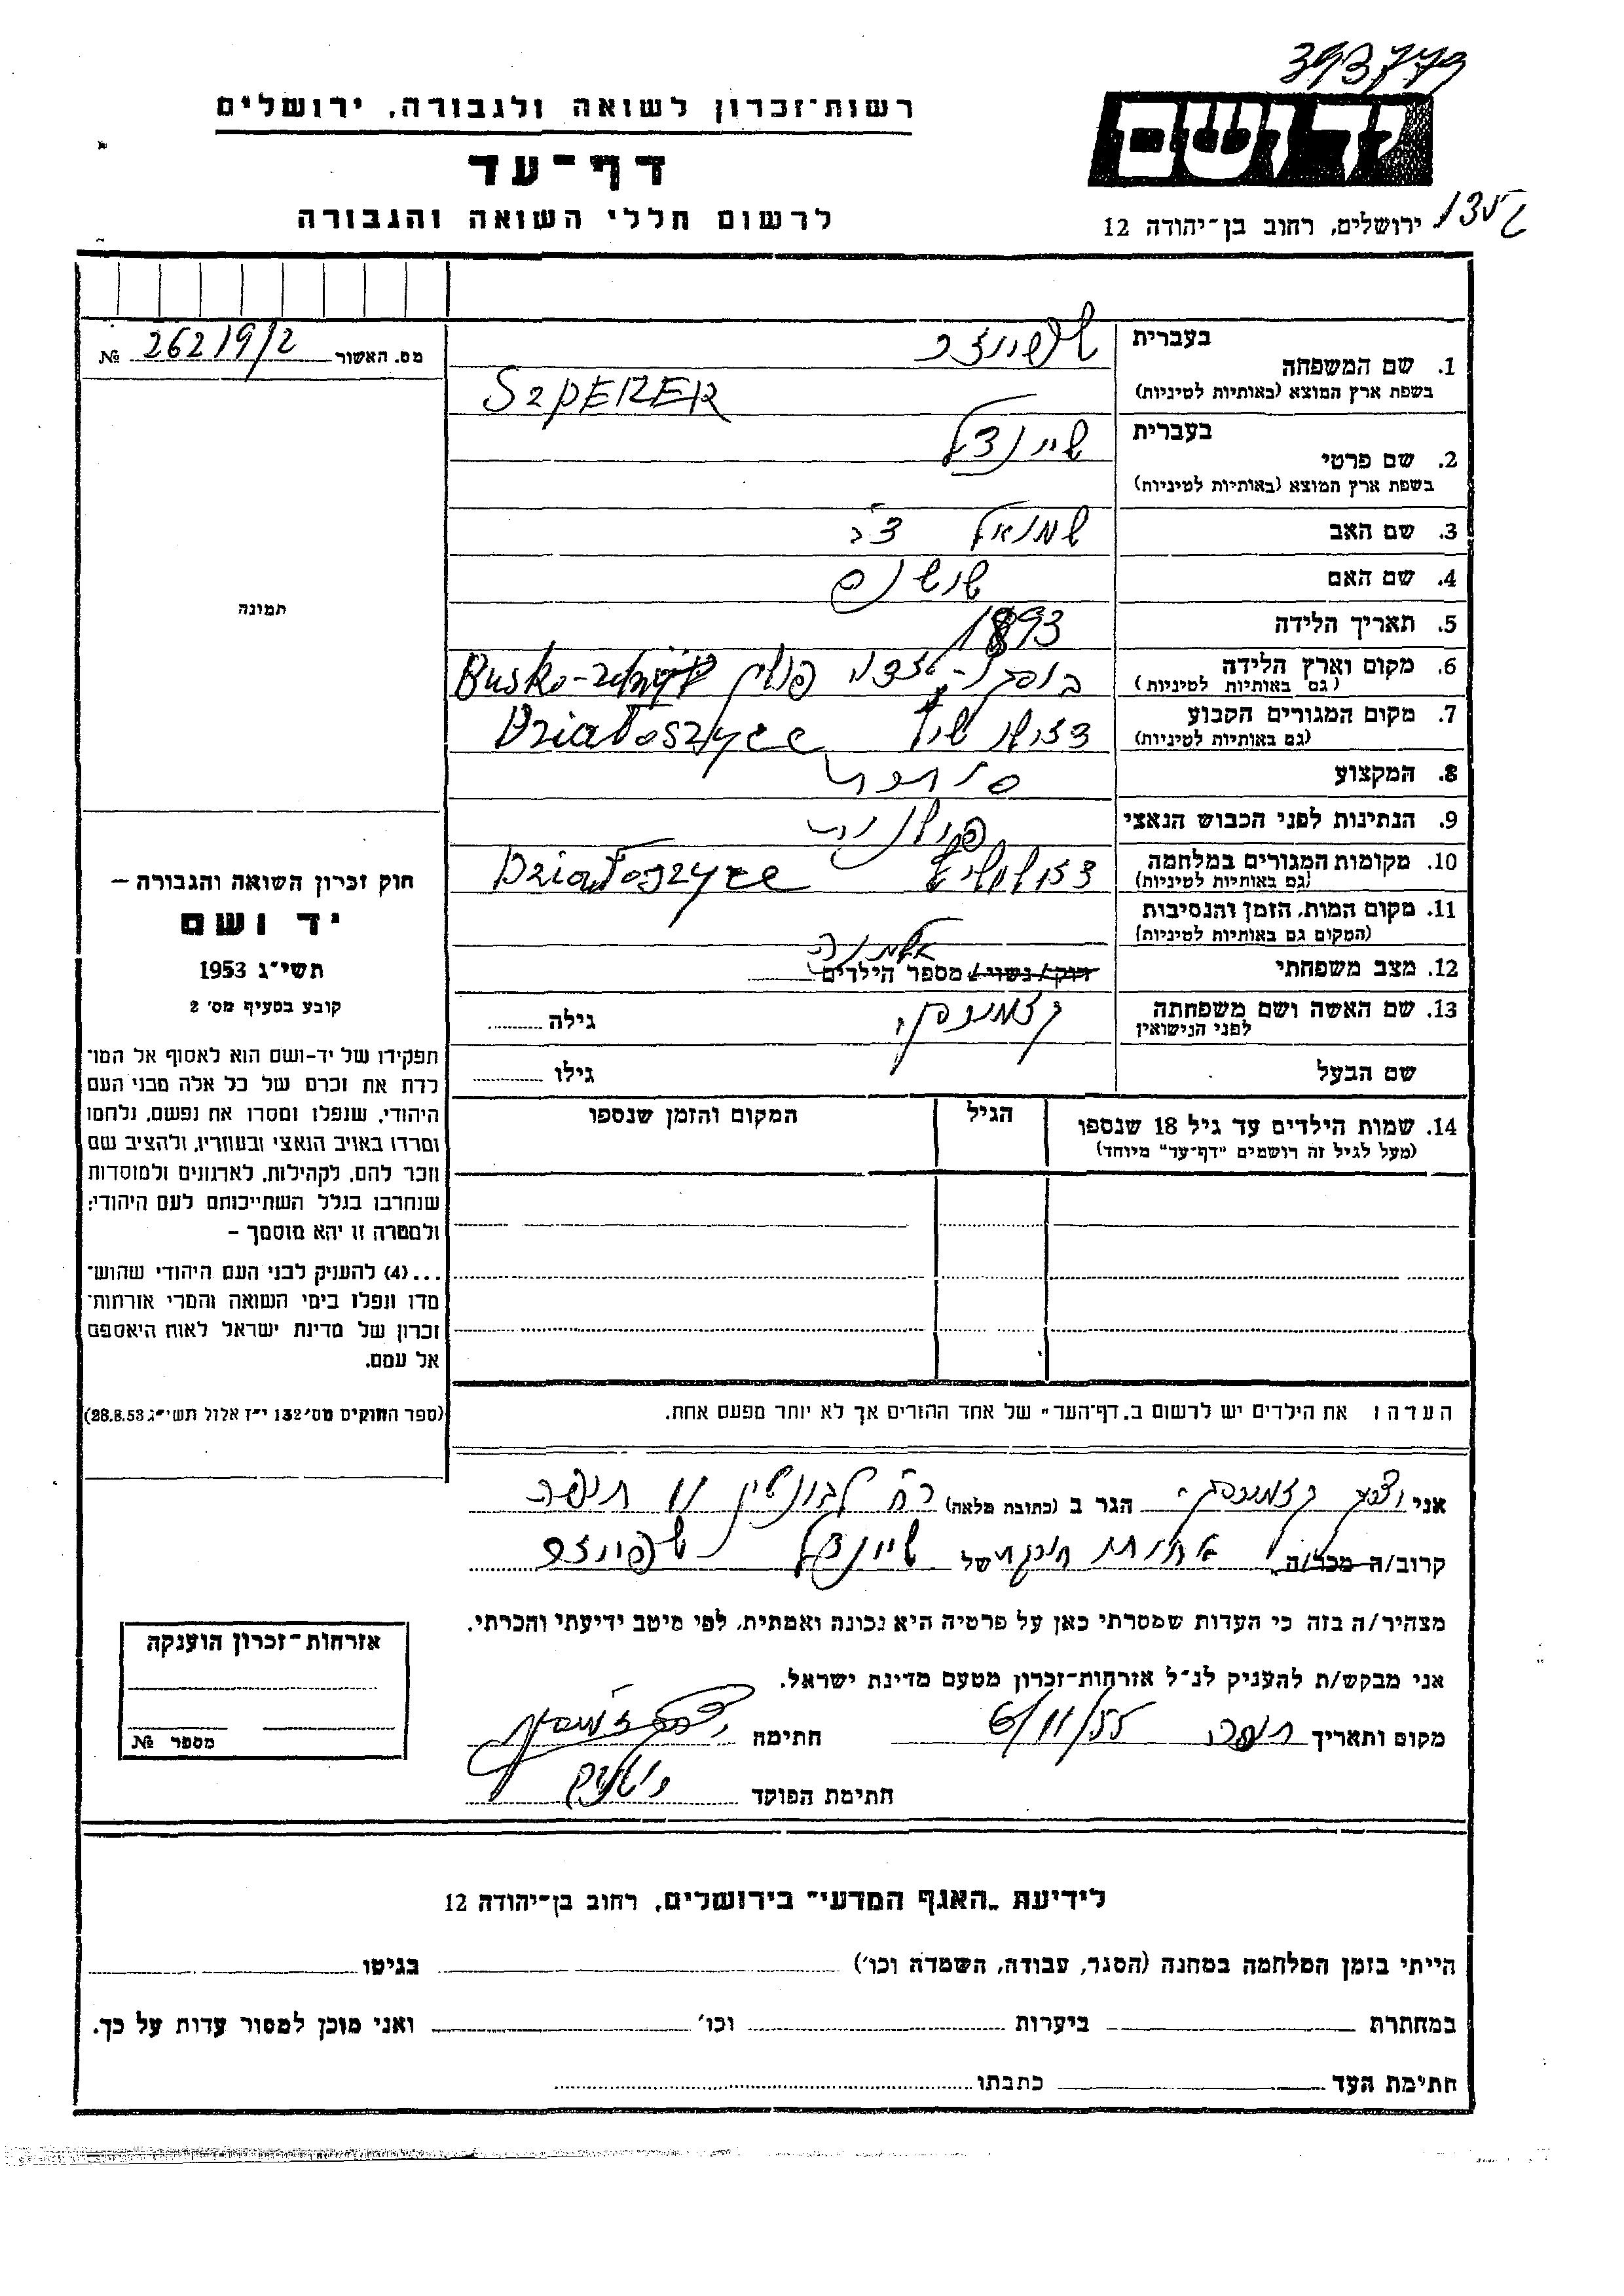 393779
רשות־זכרון לשואה ולגבורה, ירושלים
יד ושם
דף־עד
לרשום חללי השואה והגבורה
ירושלים, רחוב בן־יהודה 12
מס. האשור 26219/2 №
בעברית
1. שם המשפחה
בשפת ארץ המוצא (באותיות לטיניות)
SzpERER
בעברית
2. שם פרטי שיינדל
בשפת ארץ המוצא (באותיות לטיניות)
3. שם האב שמואל צבי
4. שם האם
5. תאריך הלידה 1893
6. מקום וארץ הלידה פולין Busko-
(גם באותיות לטיניות)
7. מקום המגורים הקבוע Działoszyce
(גם באותיות לטיניות)
8. המקצוע סוחרת
9. הנתינות לפני הכבוש הנאצי פולנית
10. מקומות המגורים במלחמה Działoszyce
(גם באותיות לטיניות)
11. מקום המות, הזמן והנסיבות
(המקום גם באותיות לטיניות)
אלמנה
12. מצב משפחתי רווק/נשוי/ מספר הילדים
13. שם האשה ושם משפחתה גילה
לפני הנישואין
שם הבעל גילו
14. שמות הילדים עד גיל 18 שנספו הגיל המקום והזמן שנספו
(מעל לגיל זה רושמים "דף־עד" מיוחד)
תמונה
חוק זכרון השואה והגבורה –
יד ושם
תשי"ג 1953
קובע בסעיף מס׳ 2
תפקידו של יד־ושם הוא לאסוף אל המו־
לדת את זכרם של כל אלה מבני העם
היהודי, שנפלו ומסרו את נפשם, נלחמו
ומרדו באויב הנאצי ובעוזריו, ולהציב שם
וזכר להם, לקהילות, לארגונים ולמוסדות
שנחרבו בגלל השתייכותם לעם היהודי;
ולמטרה זו יהא מוסמך –
...(4) להעניק לבני העם היהודי שהוש־
מדו ונפלו בימי השואה והמרי אזרחות־
זכרון של מדינת ישראל לאות היאספם
אל עמם.
(ספר החוקים מס׳ 132 י"ז אלול תשי"ג 28.8.53)
הערה: את הילדים יש לרשום ב„דף־העד" של אחד ההורים אך לא יותר מפעם אחת.
אני הגר ב (כתובת מלאה) רח׳ 11 חיפה
קרוב/ה מכר/ה של שיינדל
מצהיר/ה בזה כי העדות שמסרתי כאן על פרטיה היא נכונה ואמתית, לפי מיטב ידיעתי והכרתי.
אני מבקש/ת להעניק לנ"ל אזרחות־זכרון מטעם מדינת ישראל.
מקום ותאריך חיפה 6/11/55 חתימה
חתימת הפוקד
אזרחות־זכרון הוענקה
מספר №
לידיעת „האגף המדעי" בירושלים, רחוב בן־יהודה 12
הייתי בזמן המלחמה במחנה (הסגר, עבודה, השמדה וכו׳) בגיטו
במחתרת ביערות וכו׳ ואני מוכן למסור עדות על כך.
חתימת העד כתבתו